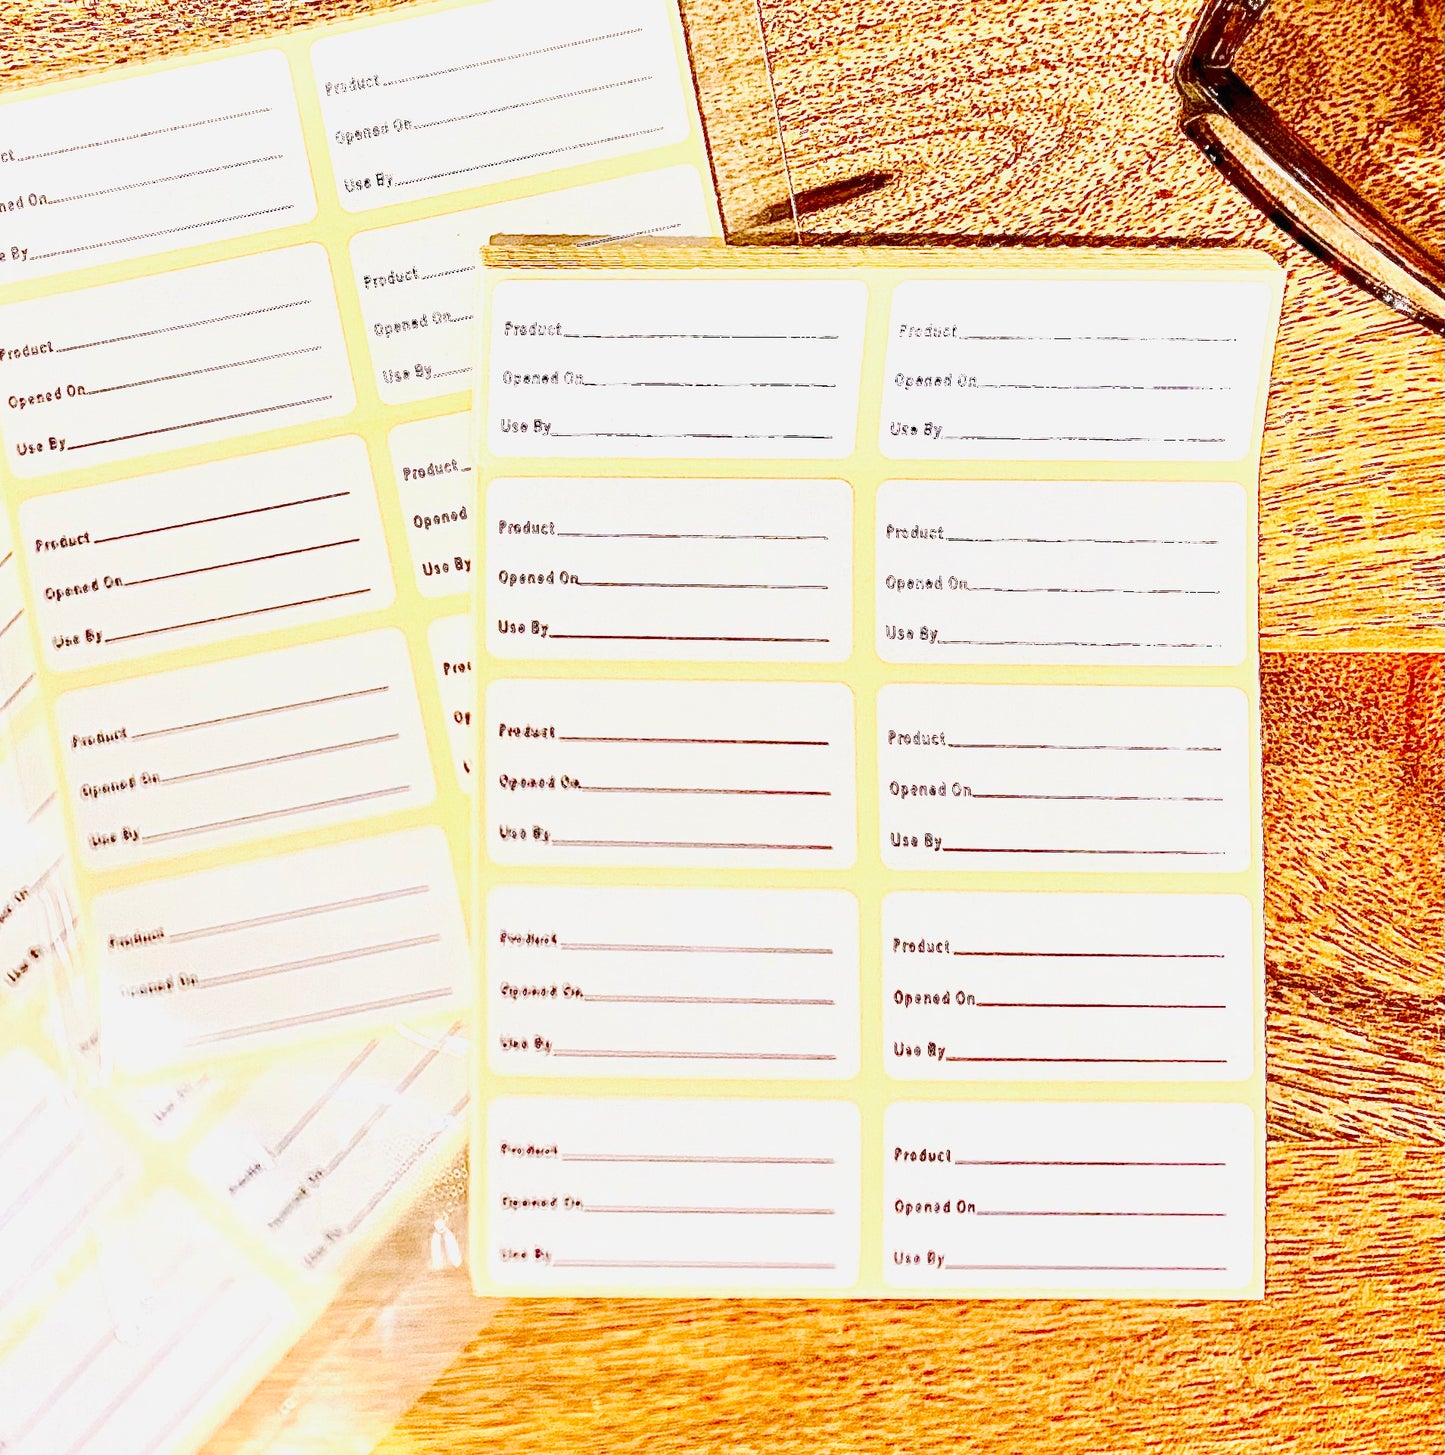 Product
Opened On
Use By
ct
ned On
e By
Product
Opened On
Use By
Product
Opened On
Use By
Product
Opened On
Use By
Product
Opened
Use By
Product
Opened On
Use By
Product
Opened On
Use By
Product
Opened On
Product
Opened On
Use By
Product
Opened On
Use By
Product
Opened On
Use By
Product
Opened On
Use By
Product
Opened On
Use By
Product
Opened On
Use By
Product
Opened On
Use By
Product
Opened On
Use By
Product
Opened On
Use By
Product
Opened On
Use By